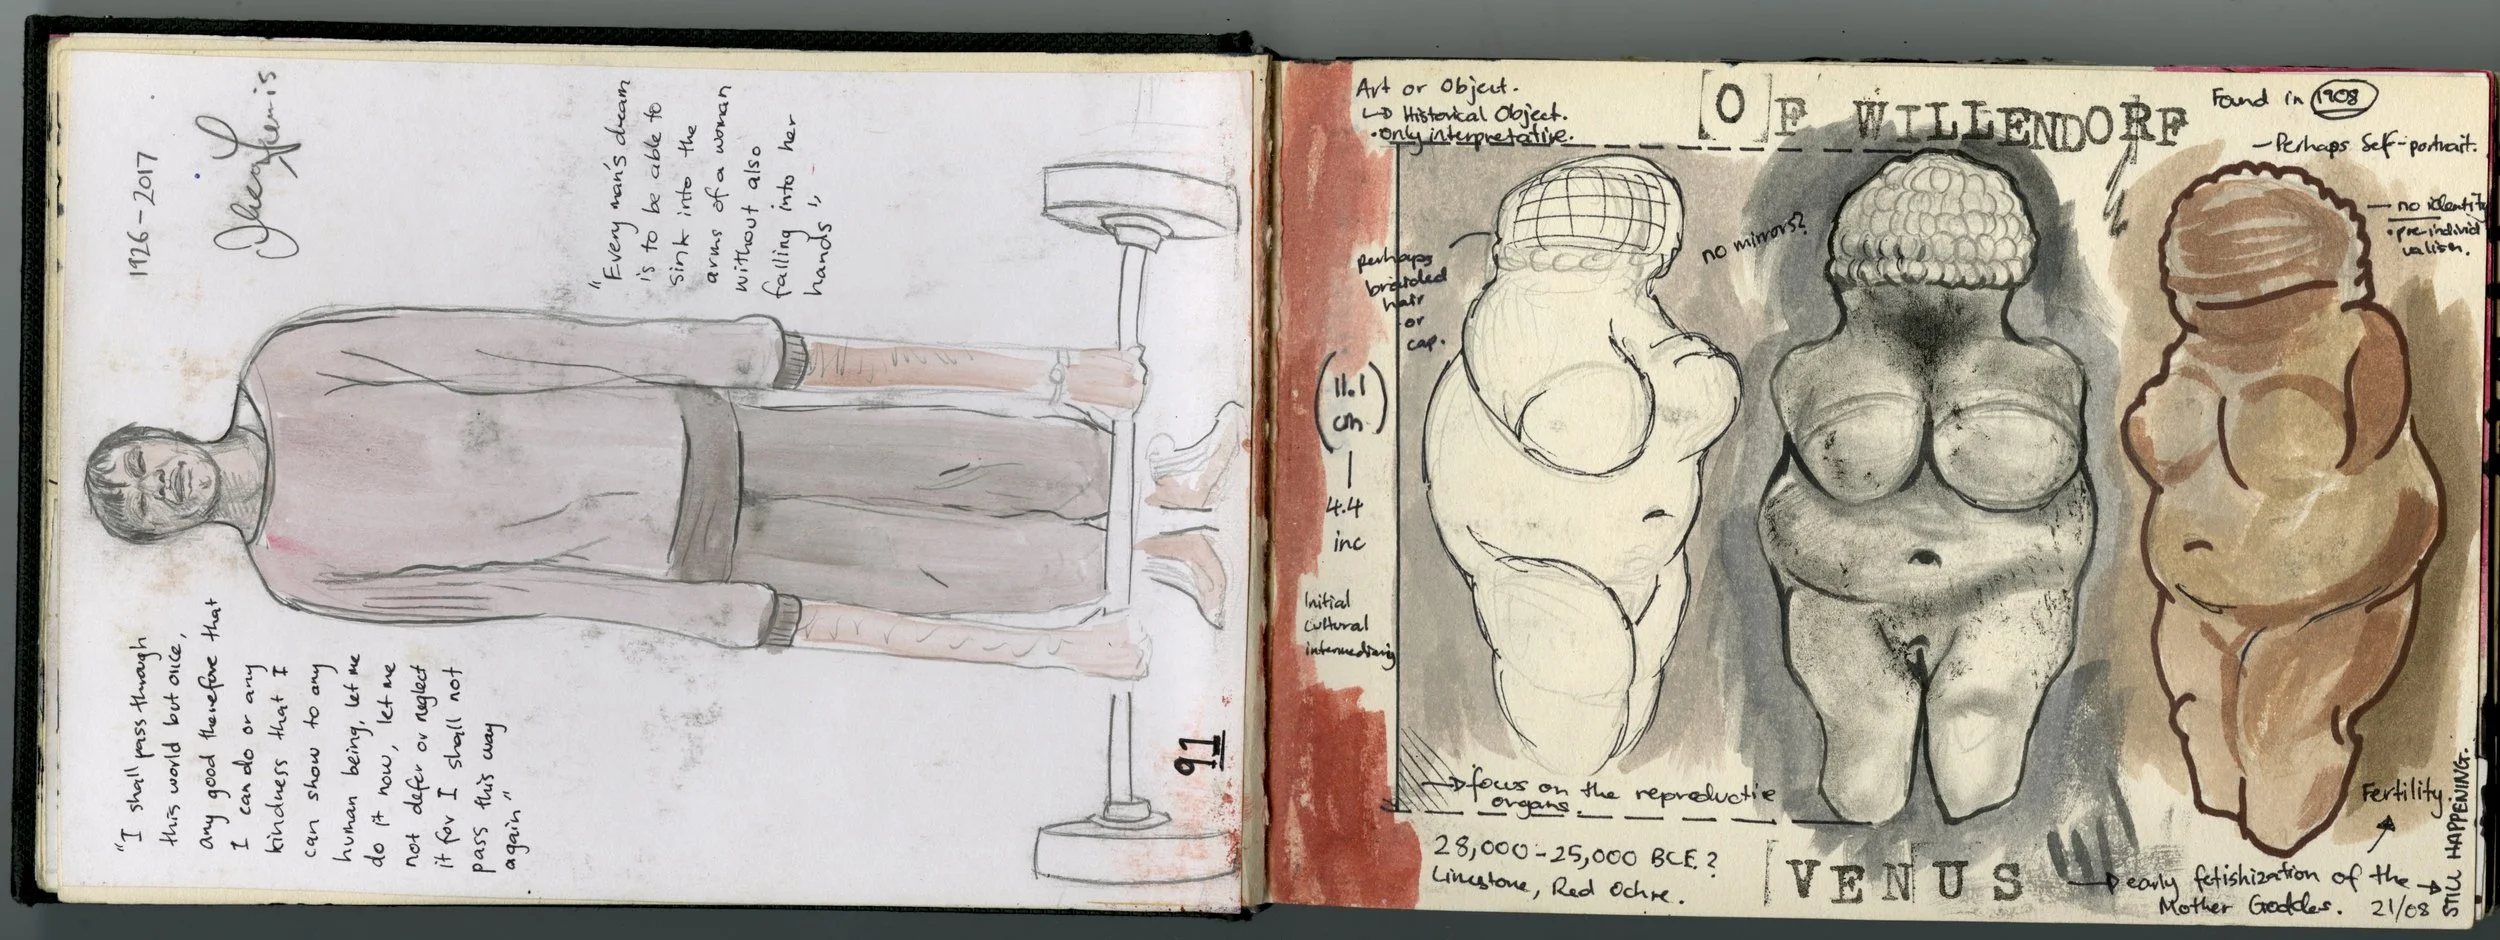 1926-2017
"Every man's dream
is to be able to
sink into the
arms of a woman
without also
falling into her
hands",
"I shall pass through
this world but once,
any good therefore that
I can do or any
kindness that I
can show to any
human being, let me
do it now, let me
not defer or neglect
it for I shall not
pass this way
again"
91
Art or Object.
↳ Historical Object.
•only interpretative.
OF WILLENDORF
Found in 1908
- Perhaps Self-portrait.
- no identity
•pre-individ
ualism.
no mirrors?
perhaps
braided
hair
or
cap.
(11.1
cm)
4.4
inc
Initial
Cultural
→ focus on the reproductive
organs.
28,000-25,000 BCE?
Limestone, Red Ochre.
VENUS
Fertility.
→ early fetishization of the →
Mother Goddess. 21/08
STILL HAPPENING.